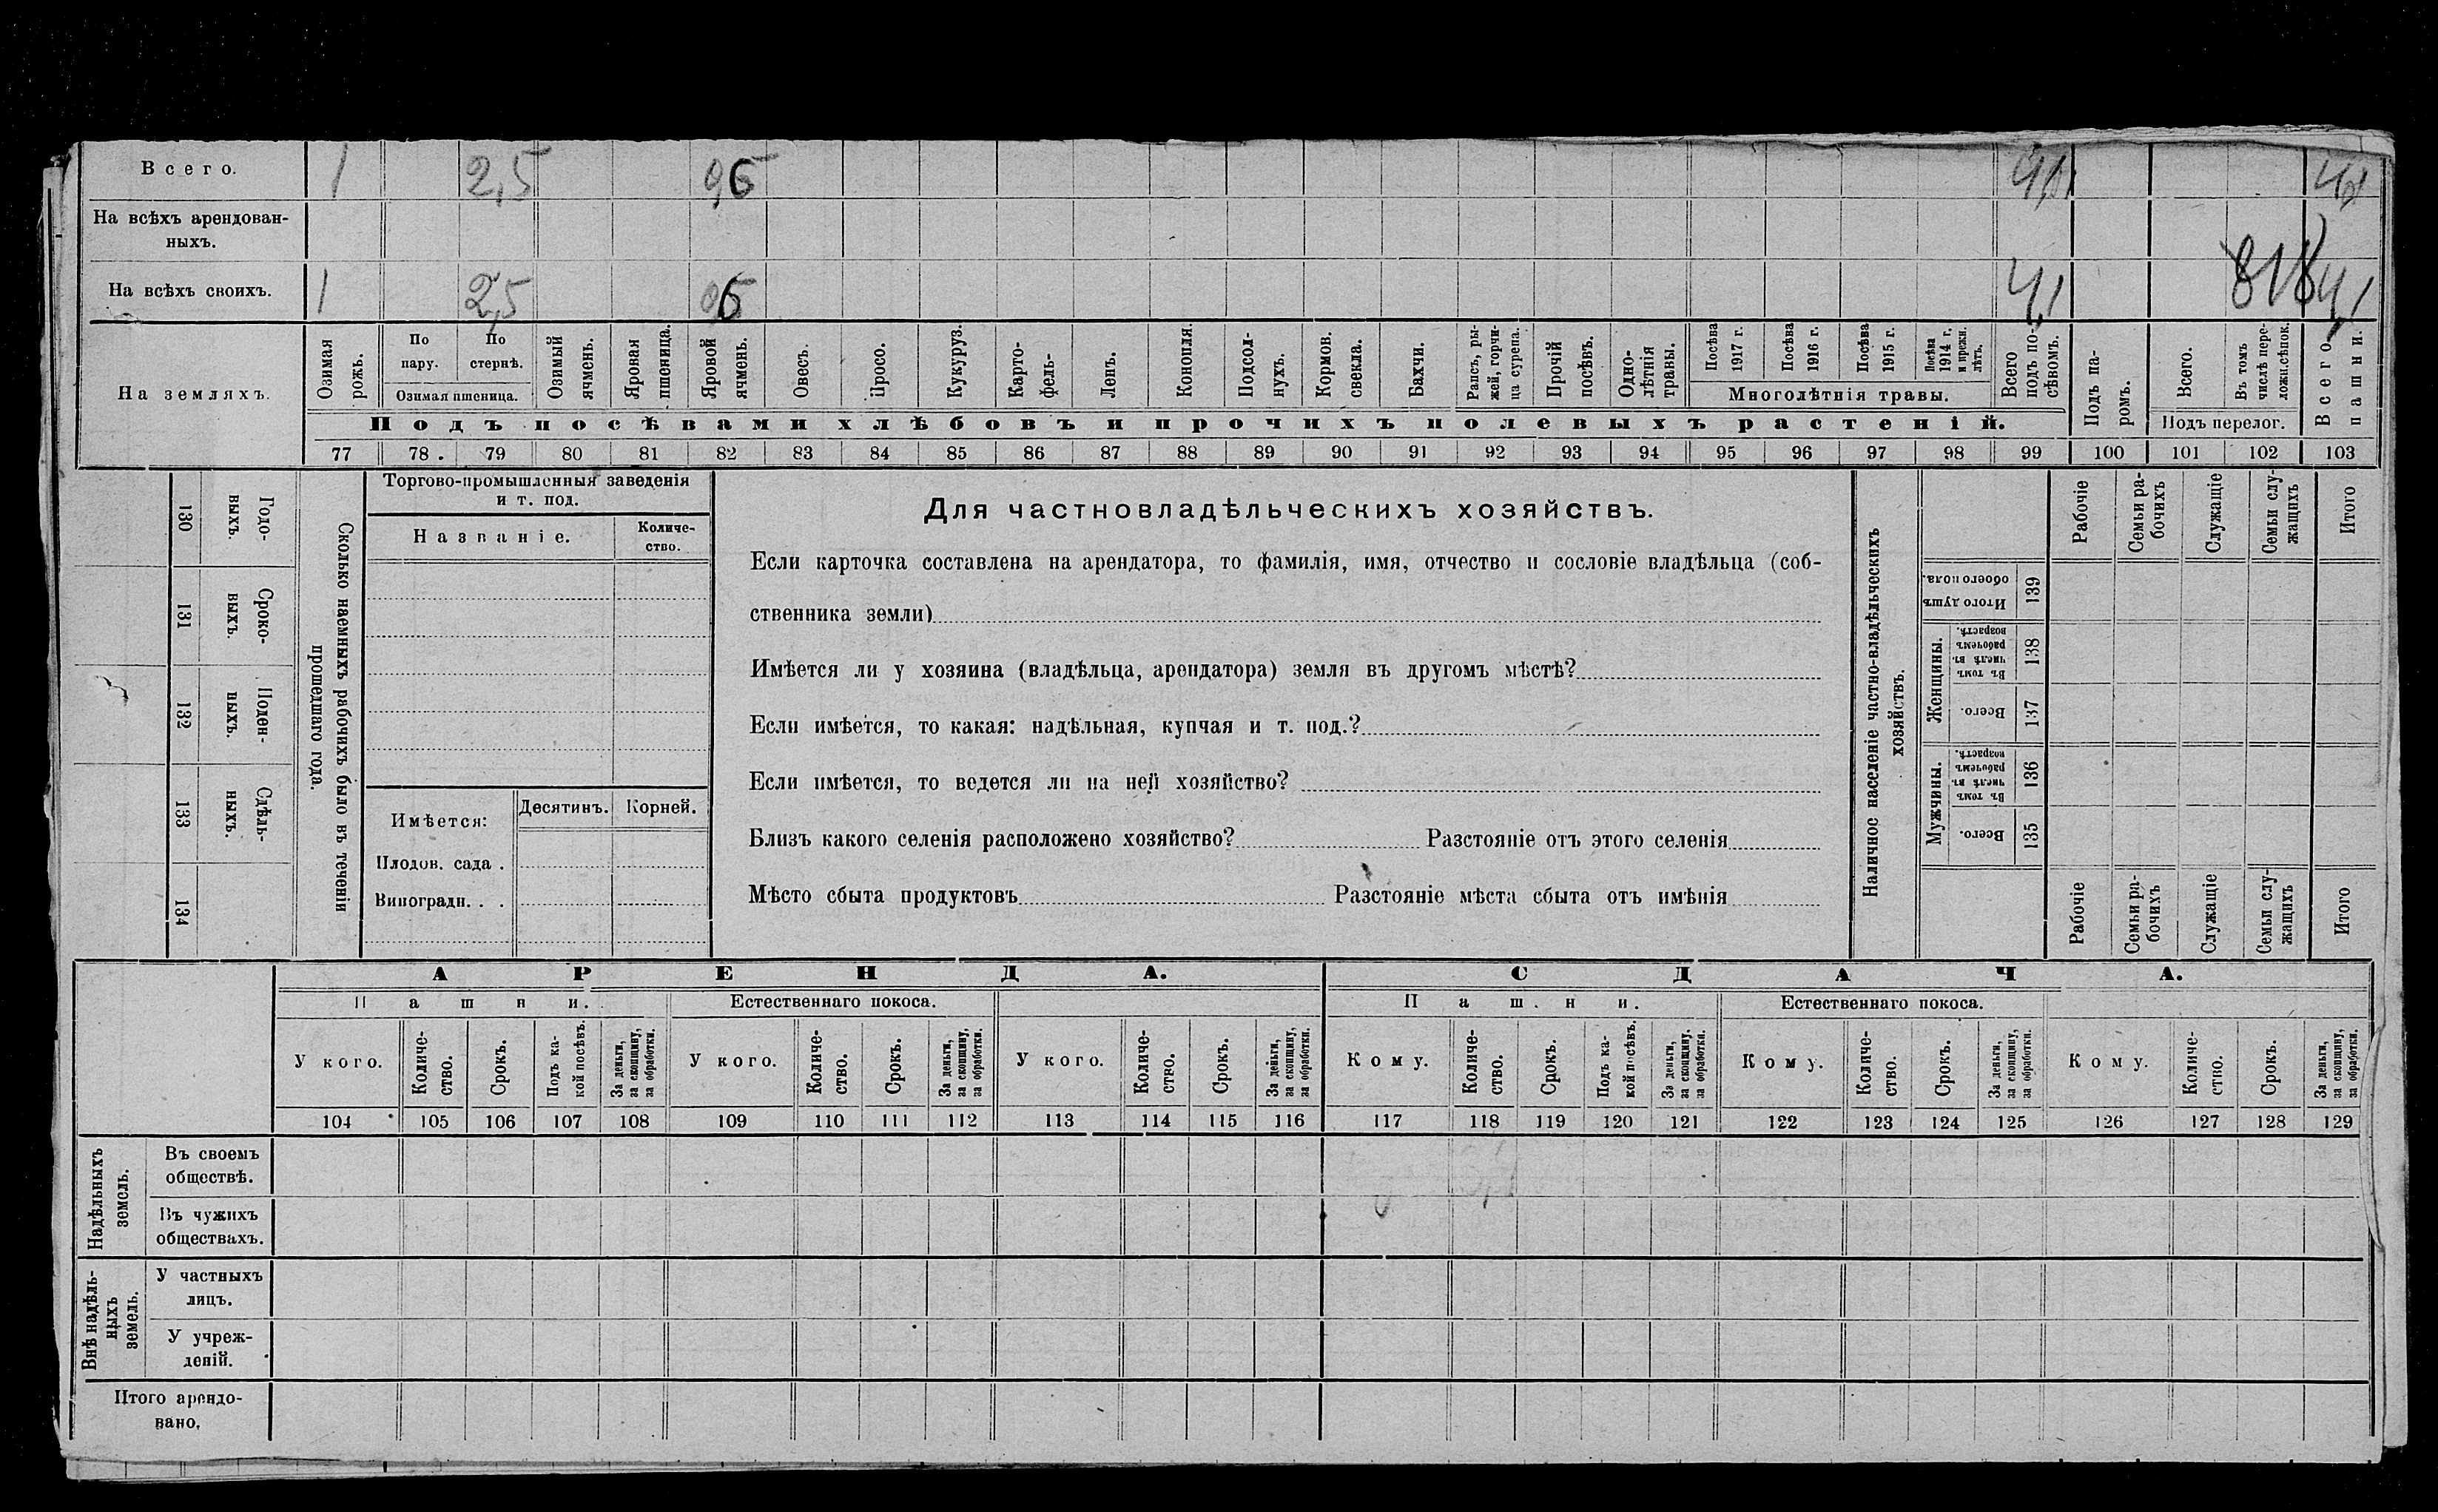 Всего. 1 2,5 0,6 4,1 4,1
На всѣхъ арендован-
ныхъ.
818
На всѣхъ своихъ. 1 2,5 0,6 4,1 4,1
На земляхъ.
Озимая рожь.
По пару.
По стернѣ.
Озимая пшеница.
Озимый ячмень.
Яровая пшеница.
Яровой ячмень.
Овесъ.
Просо.
Кукуруз.
Карто-
фель-
Ленъ.
Конопля.
Подсол-
нухъ.
Кормов. свекла.
Бахчи.
Рапсъ, ры-
жей, горчи-
ца сурепа.
Прочій посѣвъ.
Одно-
лѣтнія травы.
Посѣва 1917 г.
Посѣва 1916 г.
Посѣва 1915 г.
Посѣва 1914 г. и прежн. лѣтъ.
Многолѣтнія травы.
Всего подъ по-
сѣвомъ.
Подъ посѣвами хлѣбовъ и прочихъ полевыхъ растеній.
Подъ па-
ромъ.
Всего.
Въ томъ числѣ пере-
ложн. сѣнок.
Подъ перелог.
Всего пашни.
77 78. 79 80 81 82 83 84 85 86 87 88 89 90 91 92 93 94 95 96 97 98 99 100 101 102 103
130 Годо-
выхъ.
131 Сроко-
выхъ.
132 Поден-
ныхъ.
133 Сдѣль-
ныхъ.
134
Сколько наемныхъ рабочихъ было въ теченіи
прошедшаго года.
Торгово-промышленныя заведенія
и т. под.
Названіе. Количе-
ство.
Имѣется: Десятинъ. Корней.
Плодов. сада .
Виноградн. . .
Для частновладѣльческихъ хозяйствъ.
Если карточка составлена на арендатора, то фамилія, имя, отчество и сословіе владѣльца (соб-
ственника земли)
Имѣется ли у хозяина (владѣльца, арендатора) земля въ другомъ мѣстѣ?
Если имѣется, то какая: надѣльная, купчая и т. под.?
Если имѣется, то ведется ли на ней хозяйство?
Близъ какого селенія расположено хозяйство? Разстояніе отъ этого селенія
Мѣсто сбыта продуктовъ Разстояніе мѣста сбыта отъ имѣнія
Наличное населеніе частно-владѣльческихъ
хозяйствъ.
Рабочіе
Семьи ра-
бочихъ
Служащіе
Семьи слу-
жащихъ
Итого
Итого душъ обоего пола. 139
Женщины.
Въ томъ числѣ въ рабочемъ возрастѣ. 138
Всего. 137
Мужчины.
Въ томъ числѣ въ рабочемъ возрастѣ. 136
Всего. 135
Рабочіе
Семьи ра-
бочихъ
Служащіе
Семьи слу-
жащихъ
Итого
АРЕНДА. СДАЧА.
Пашни. Естественнаго покоса. Пашни. Естественнаго покоса.
У кого.
Количе-
ство.
Срокъ.
Подъ ка-
кой посѣвъ.
За деньги,
за скопщину,
за обработки.
У кого.
Количе-
ство.
Срокъ.
За деньги,
за скопщину,
за обработки.
У кого.
Количе-
ство.
Срокъ.
За деньги,
за скопщину,
за обработки.
Кому.
Количе-
ство.
Срокъ.
Подъ ка-
кой посѣвъ.
За деньги,
за скопщину,
за обработки.
Кому.
Количе-
ство.
Срокъ.
За деньги,
за скопщину,
за обработки.
Кому.
Количе-
ство.
Срокъ.
За деньги,
за скопщину,
за обработки.
104 105 106 107 108 109 110 111 112 113 114 115 116 117 118 119 120 121 122 123 124 125 126 127 128 129
Надѣльныхъ
земель.
Въ своемъ
обществѣ.
Въ чужихъ
обществахъ.
Внѣ надѣль-
ныхъ
земель.
У частныхъ
лицъ.
У учреж-
деній.
Итого арендо-
вано.